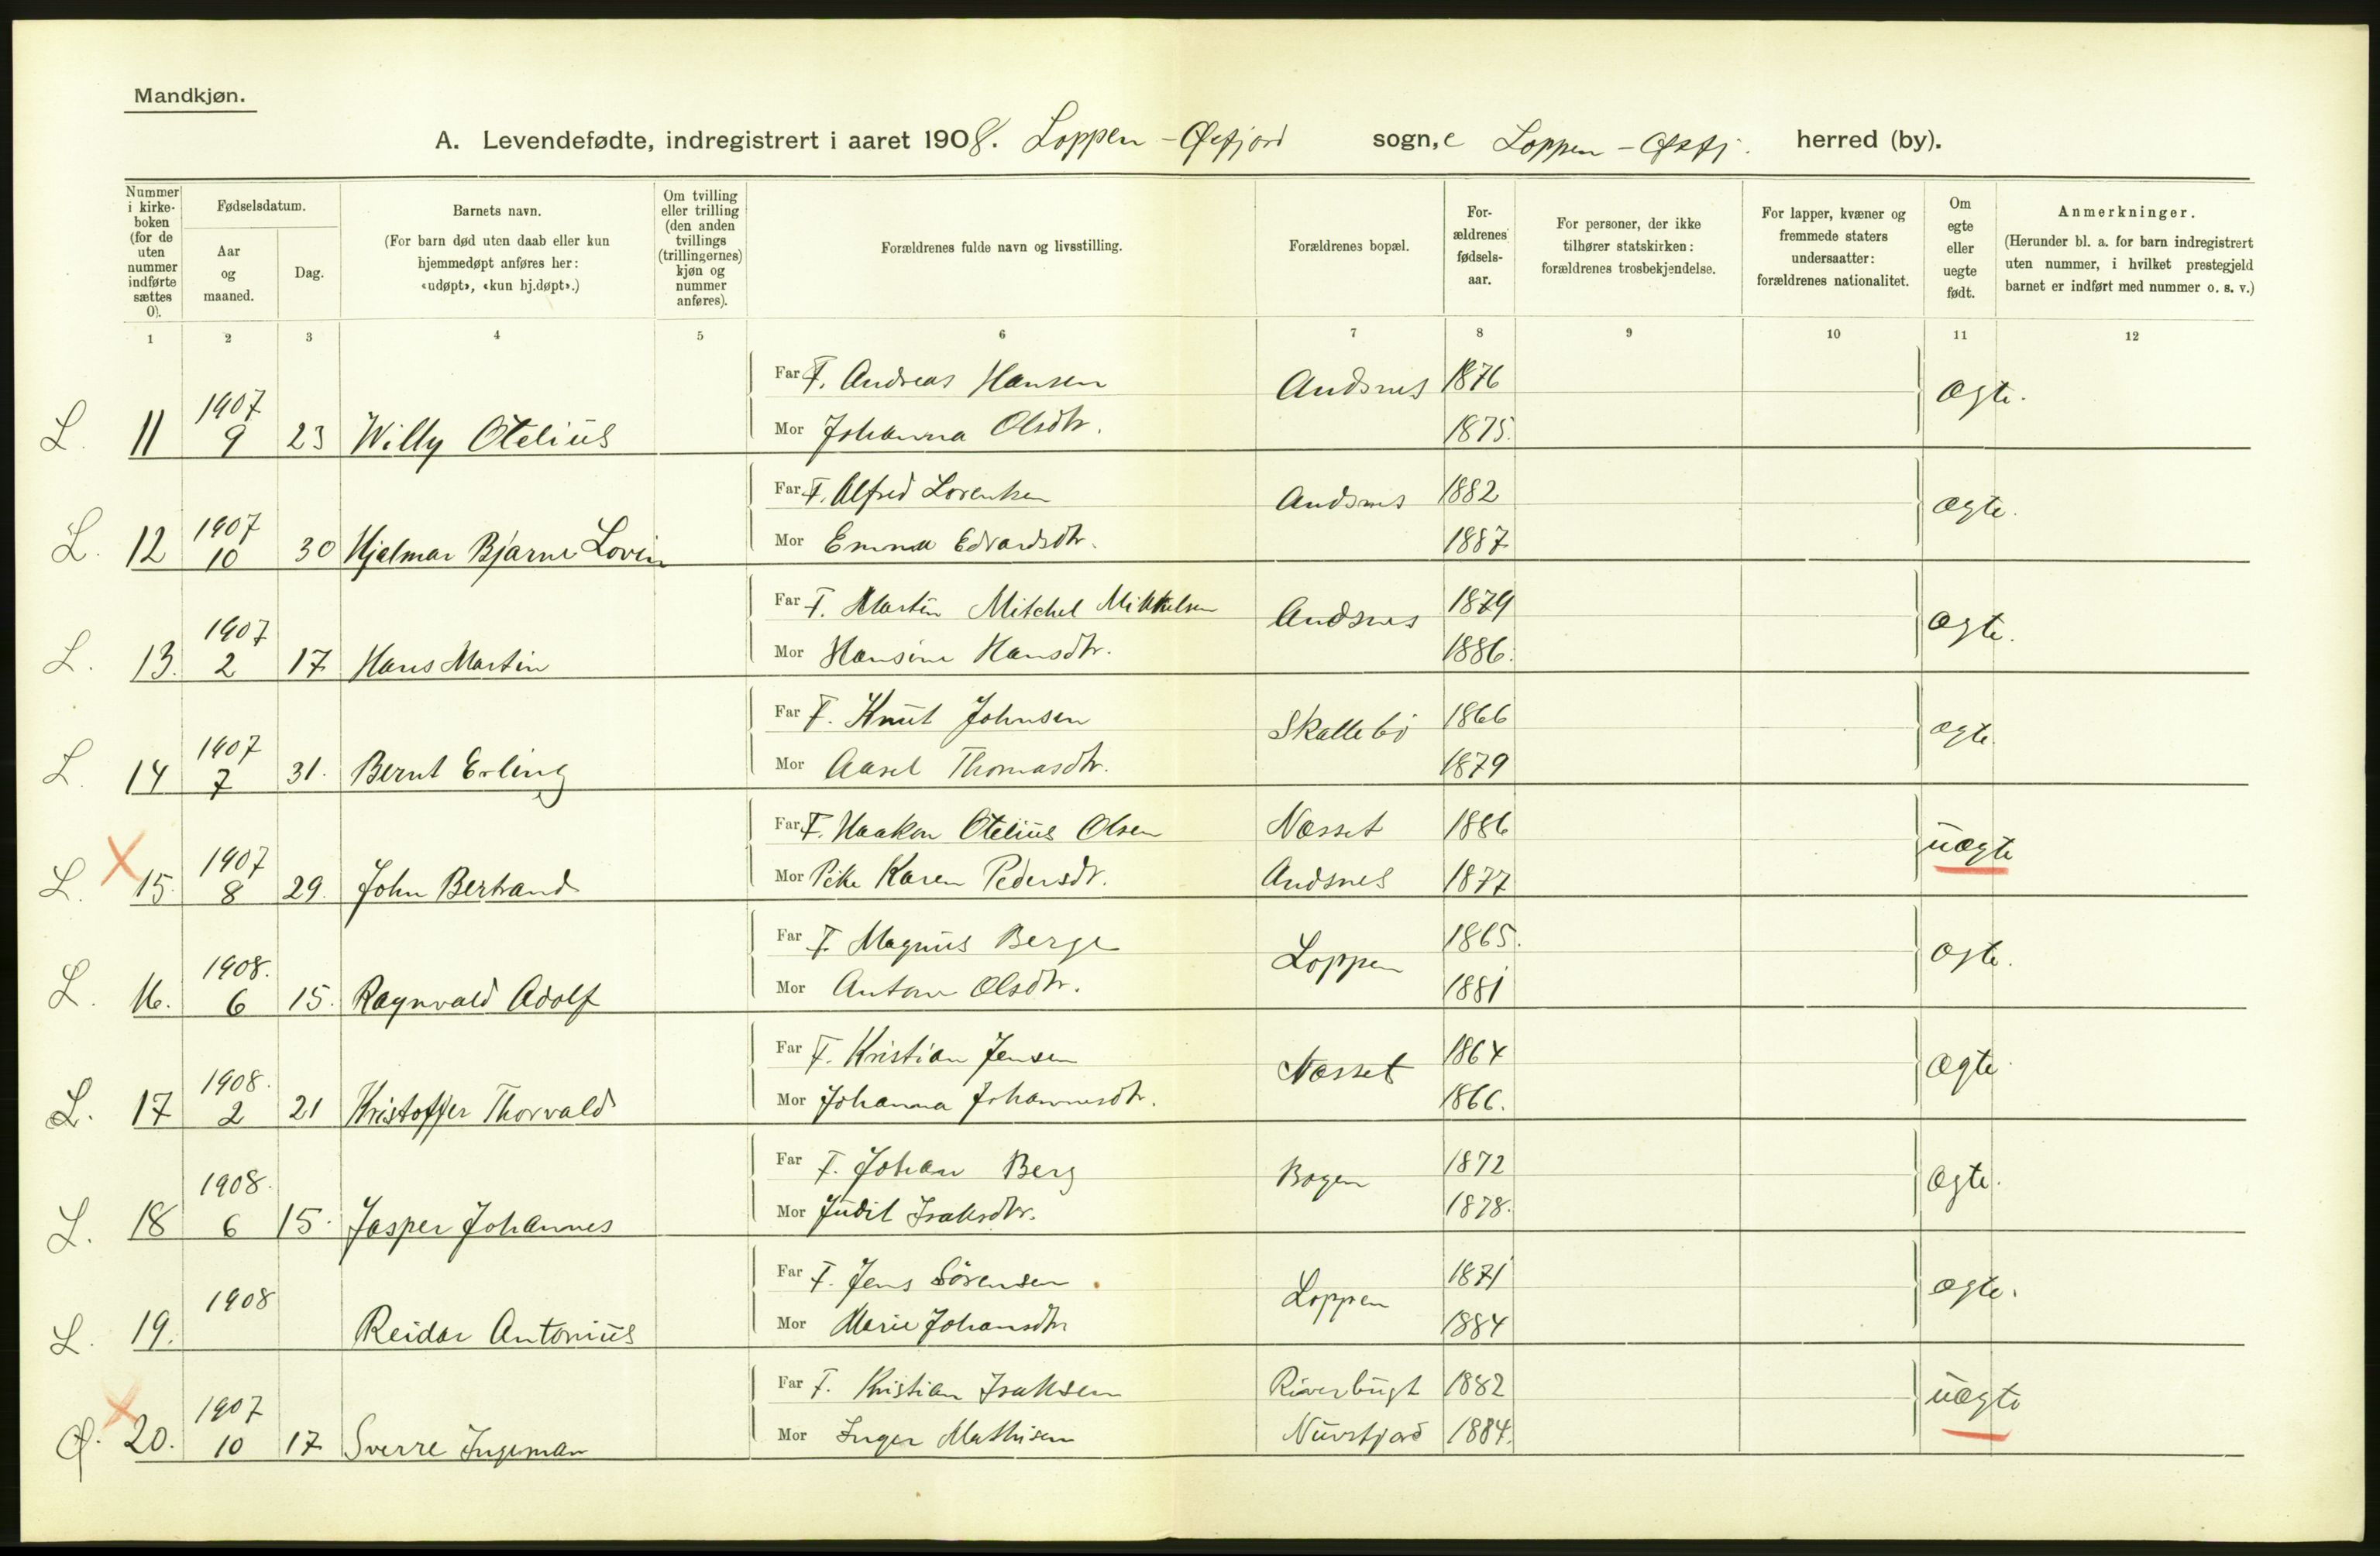 Mandkjøn.
A. Levendefødte, indregistrert i aaret 1908. Loppen - Øxfjord sogn, Loppen - Øxfj. herred (by).
Nummer i kirke- boken (for de uten nummer indførte sættes 0).
Fødselsdatum.
Aar og maaned.
Dag.
Barnets navn.
(For barn død uten daab eller kun hjemmedøpt anføres her: «udøpt», «kun hj.døpt».)
Om tvilling eller trilling (den anden tvillings (trillingernes) kjøn og nummer anføres).
Forældrenes fulde navn og livsstilling.
Forældrenes bopæl.
For- ældrenes fødsels- aar.
For personer, der ikke tilhører statskirken: forældrenes trosbekjendelse.
For lapper, kvæner og fremmede staters undersaatter: forældrenes nationalitet.
Om egte eller uegte født.
Anmerkninger.
(Herunder bl. a. for barn indregistrert uten nummer, i hvilket prestegjeld barnet er indført med nummer o. s. v.)
1 2 3 4 5 6 7 8 9 10 11 12
Far F. Andreas Hansen Andsnes 1876 ægte.
L. 11 1907 9 23 Willy Otelius
Mor Johanna Olsdtr. 1875.
Far F. Alfred Lorentsen Andsnes 1882 ægte.
L. 12 1907 10 30 Hjalmar Bjarne Lovin
Mor Emma Edvardsdtr. 1887
Far F. Martin Mitchel Mikkelsen Andsnes 1879 ægte.
L. 13. 1907 2 17 Hans Martin
Mor Hansine Hansdtr. 1886.
Far F. Knut Johnsen Skallebø 1866 ægte.
L. 14 1907 7 31. Bernt Erling
Mor Aasel Thomasdtr. 1879
Far F. Haakon Otelius Olsen Næsset 1886 uægte
L. X 15. 1907 8 29. John Bertrand
Mor Pike Karen Pedersdt. Andsnes 1877
Far F. Magnus Berge Loppen 1865. ægte.
L. 16. 1908. 6 15. Ragnvald Adolf
Mor Antone Olsdtr. 1881
Far F. Kristian Jensen Næsset 1864 ægte
L. 17 1908. 2 21 Kristoffer Thorvald
Mor Johanna Johannesdtr. 1866.
Far F. Johan Berg Bogen 1872 ægte.
L. 18 1908. 6 15. Jasper Johannes
Mor Judit Isaksdtr. 1878.
Far F. Jens Sörensen Loppen 1871 ægte.
L. 19. 1908 Reidar Antonius
Mor Marie Johansdtr 1884
Far F. Kristian Isaksen Riverbugt 1882 uægte
Ø. X 20. 1907 10 17 Sverre Ingeman
Mor Inger Mathisen Nuvsfjord 1884.